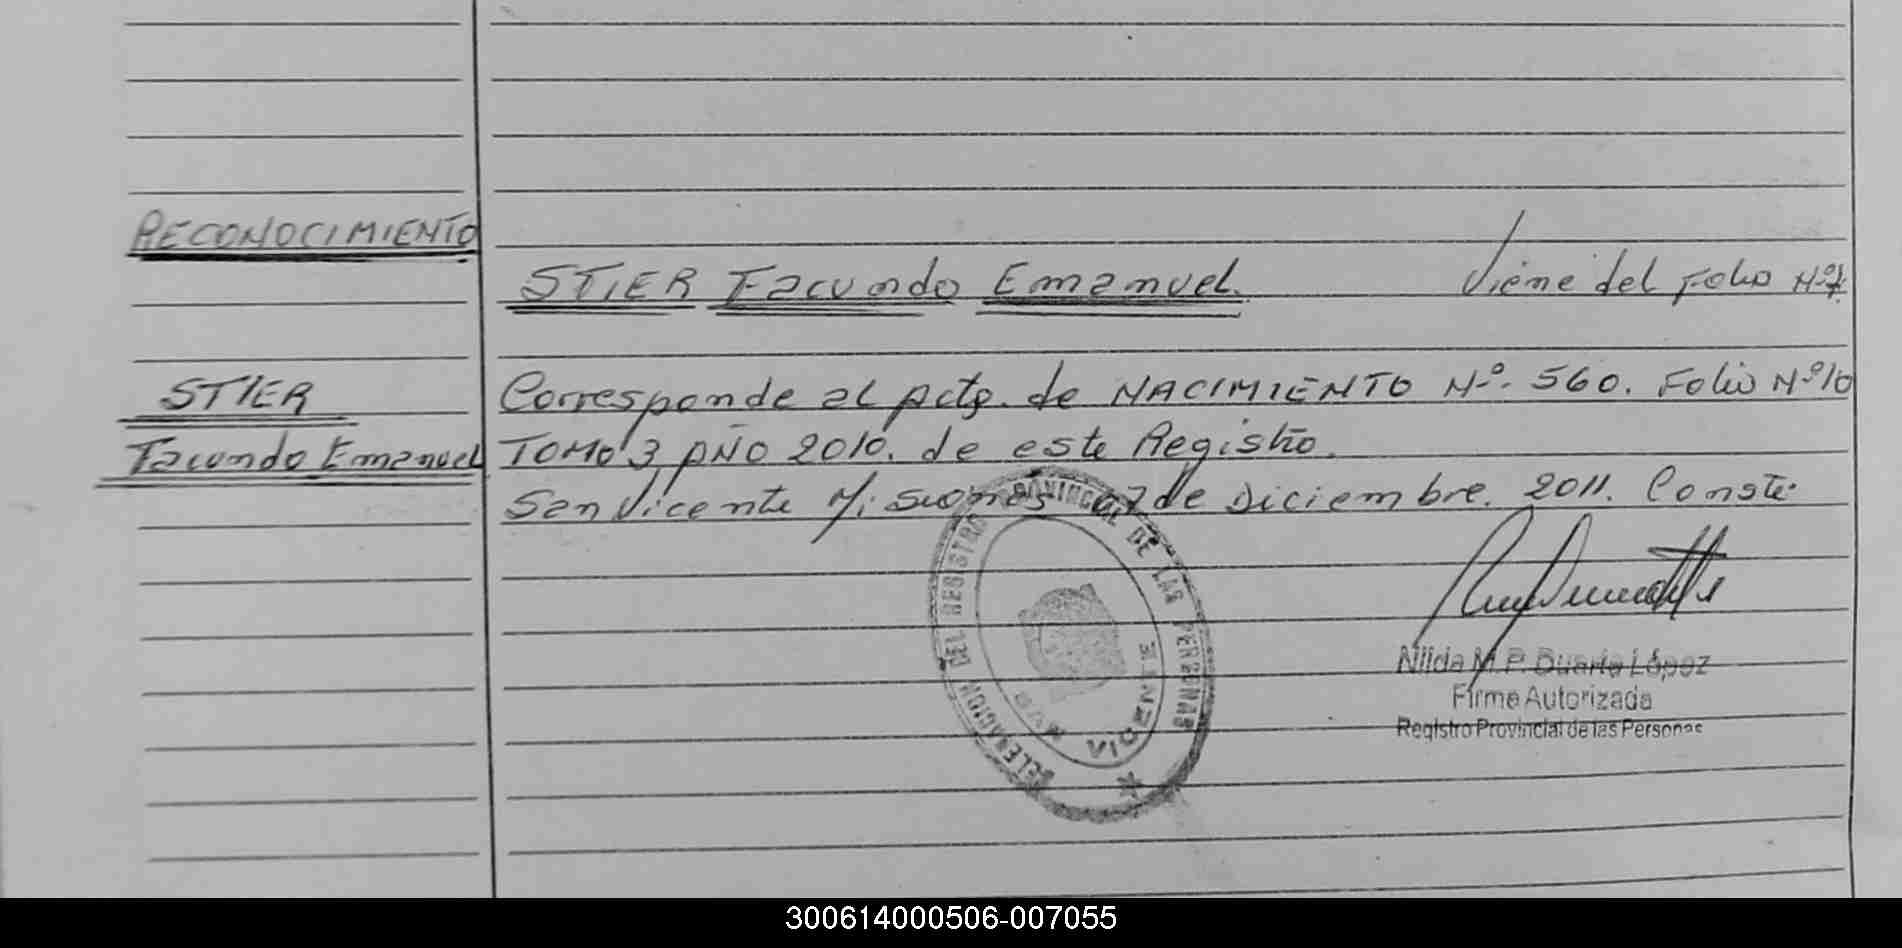 RECONOCIMIENTO
STIER Facundo Emanuel. Viene del Folio Nº 7
STIER
Facundo Emanuel
Corresponde al Acta. de NACIMIENTO Nº. 560. Folio Nº 10
TOMO 3 AÑO 2010. de este Registro.
San Vicente Misiones 07 de Diciembre. 2011. Conste.
DELEGACION DEL REGISTRO PROVINCIAL DE LAS PERSONAS
VICENTE
Nilda M.P. Duarte López
Firma Autorizada
Registro Provincial de las Personas
300614000506-007055